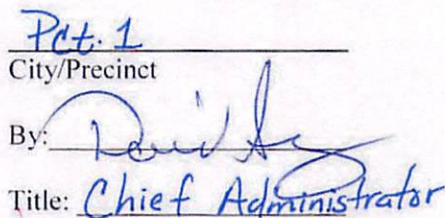 Pct. 1
City/Precinct
By:
Title: Chief Administrator